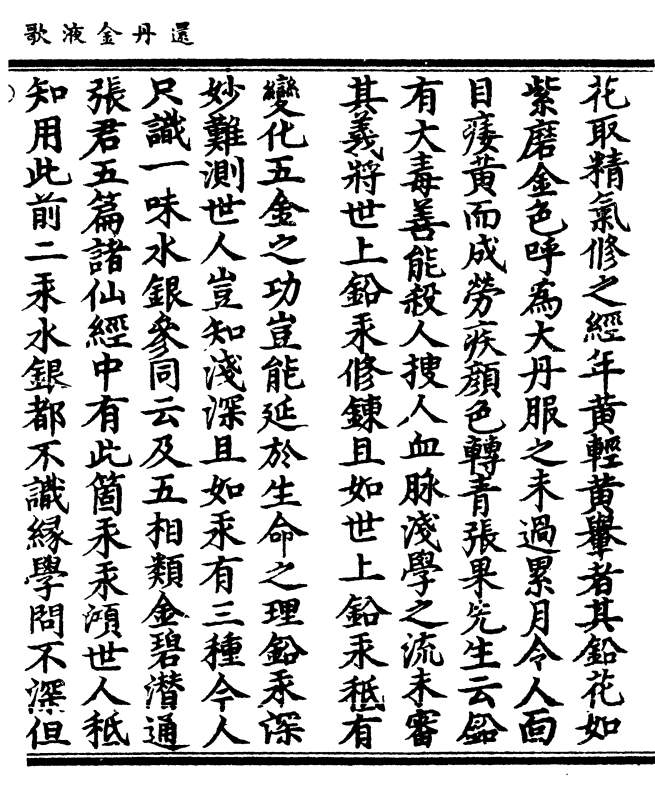 還丹金液歌
花取精氣修之經年黃輕黃轝者其鉛花如
紫磨金色呼為大丹服之未過累月令人面
目痿黃而成勞疾顏色轉青張果先生云鉛
有大毒善能殺人摗人血脉淺學之流未審
其義將世上鉛汞修鍊且如世上鉛汞秪有
變化五金之功豈能延於生命之理鉛汞深
妙難測世人豈知淺深且如汞有三種今人
尺識一味水銀參同云及五相類金碧潜通
張君五篇諸仙經中有此箇汞汞澒世人秪
知用此前二汞水銀都不識緣學問不深但